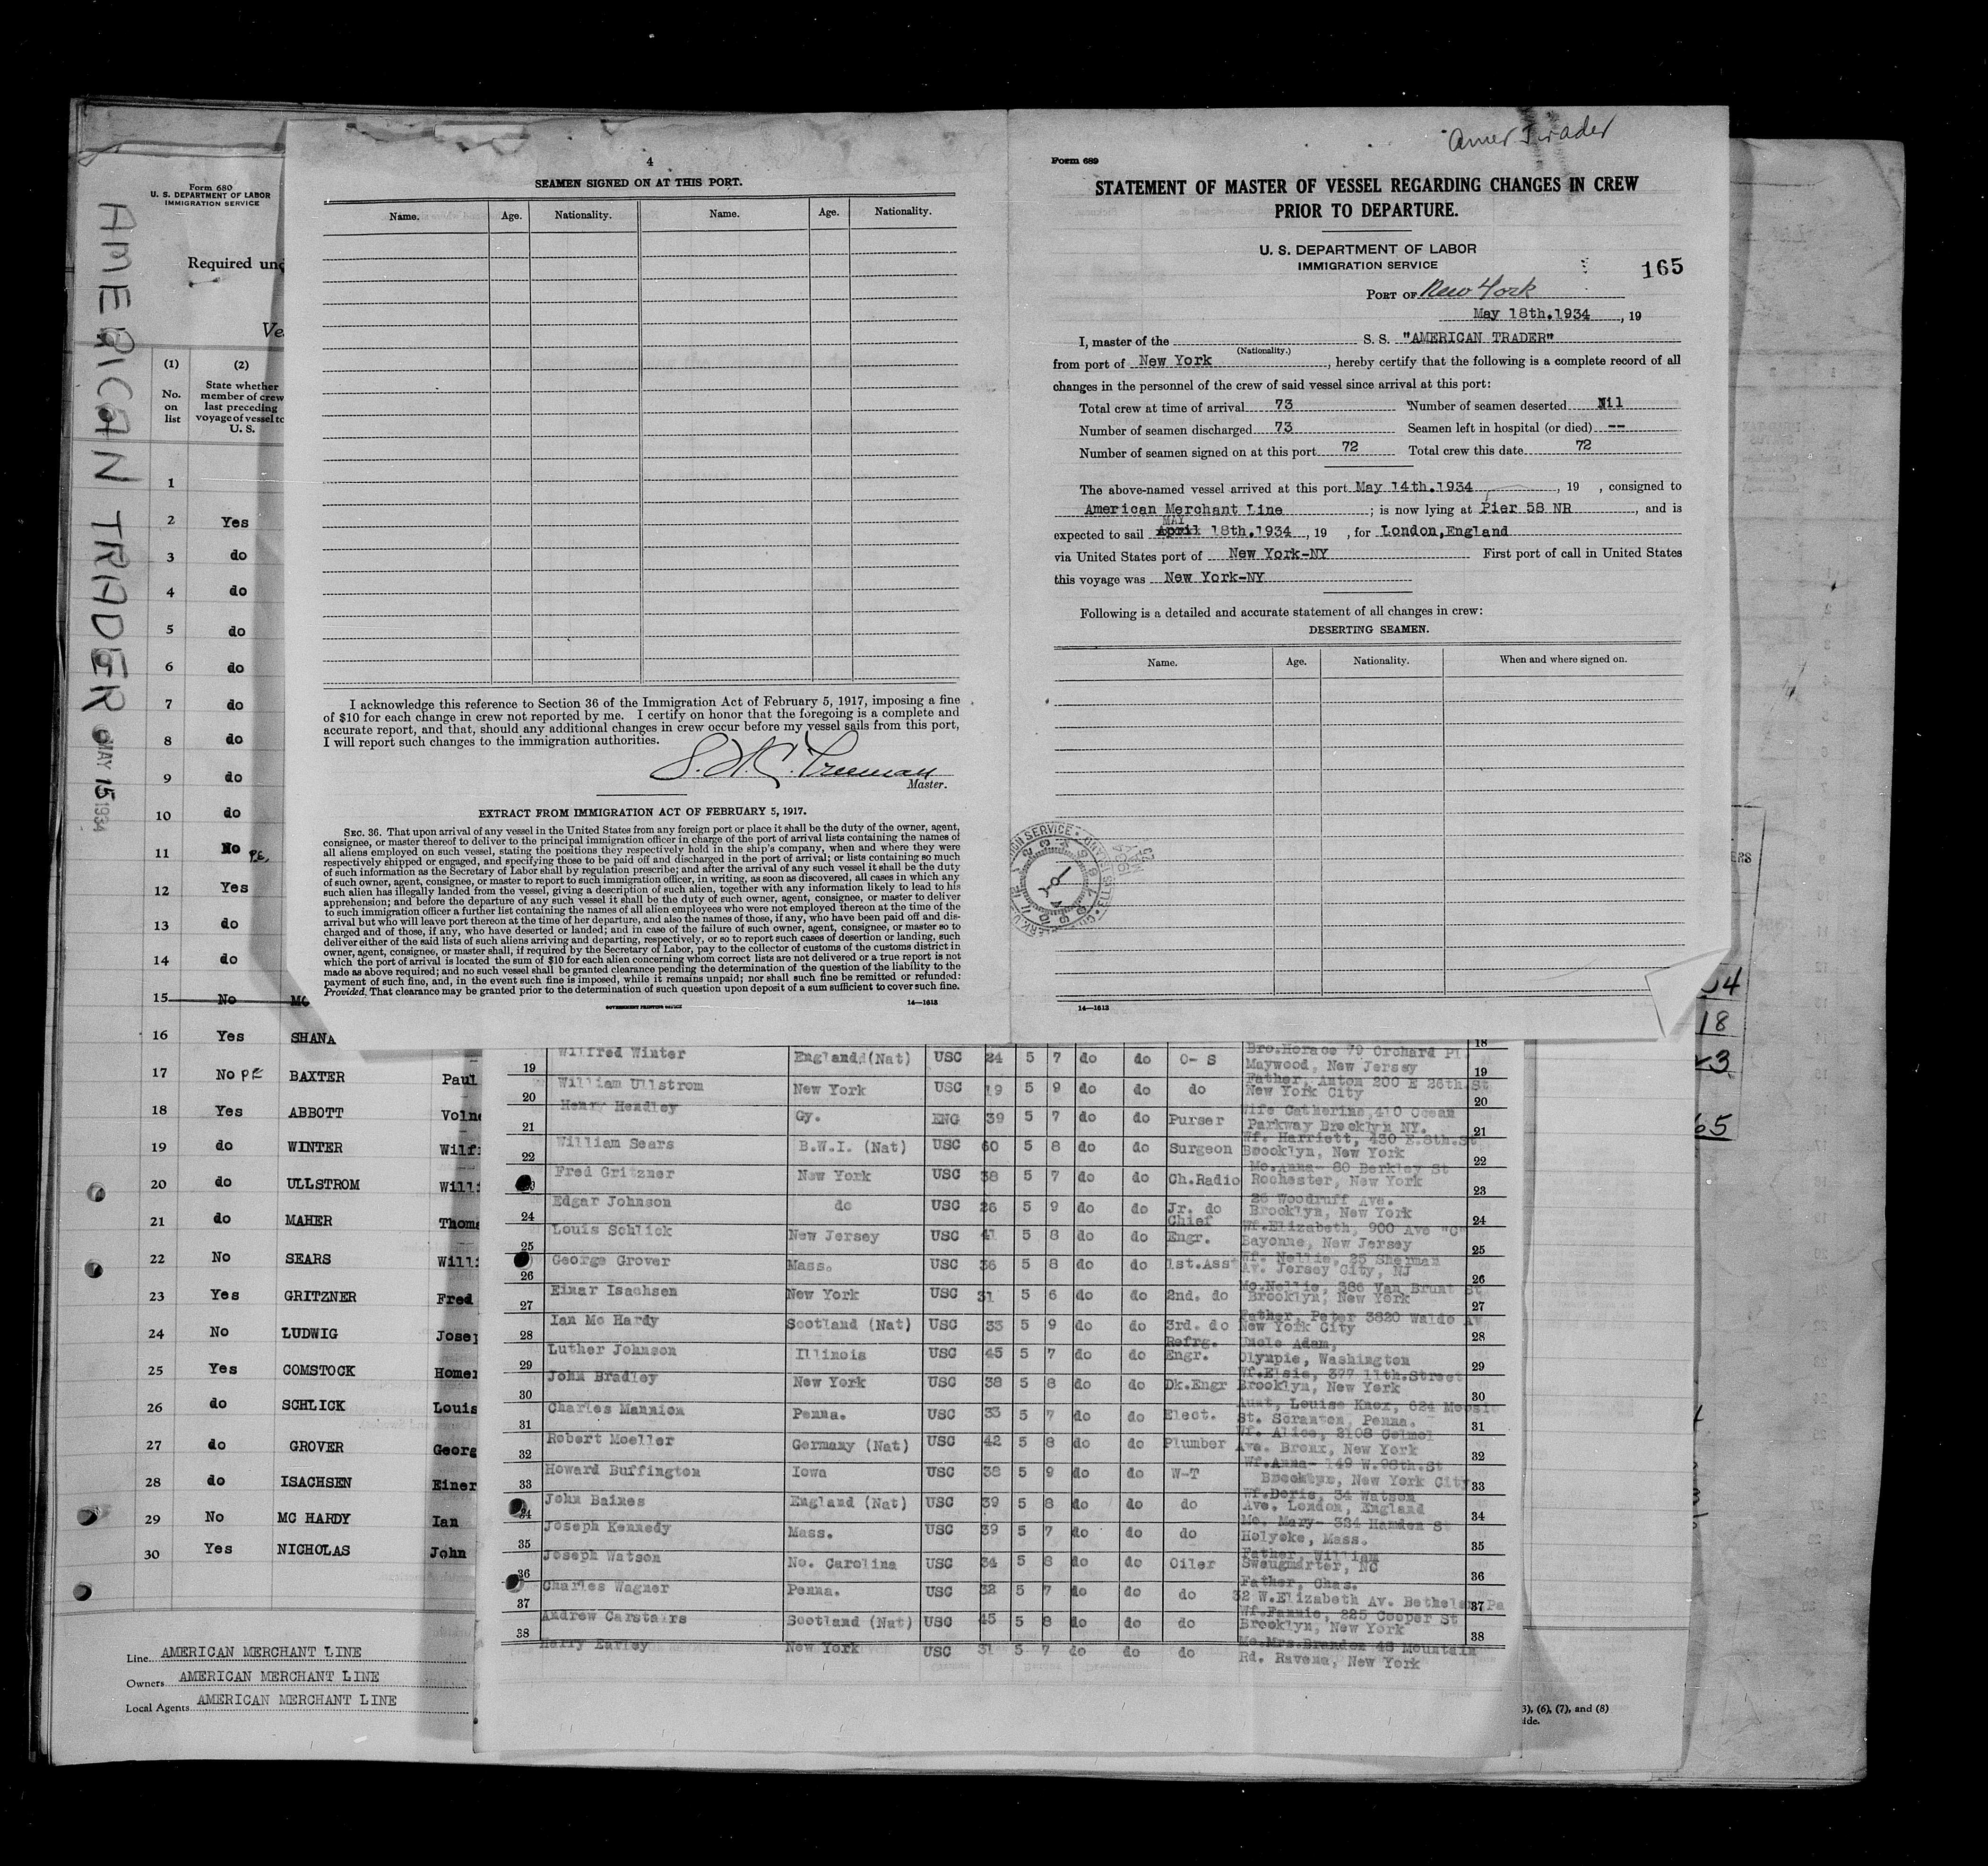 Form 680
U. S. DEPARTMENT OF LABOR
IMMIGRATION SERVICE
Required und
Ve
AMERICAN TRADER MAY 15 1934
(1) (2)
No. on list
State whether member of crew last preceding voyage of vessel to U. S.
1
2 Yes
3 do
4 do
5 do
6 do
7 do
8 do
9 do
10 do
11 No P.E.
12 Yes
13 do
14 do
15 No MC
16 Yes SHANA
17 No PE BAXTER Paul
18 Yes ABBOTT Volne
19 do WINTER Wilf
20 do ULLSTROM Willi
21 do MAHER Thoma
22 No SEARS Willi
23 Yes GRITZNER Fred
24 No LUDWIG Josep
25 Yes COMSTOCK Homer
26 do SCHLICK Louis
27 do GROVER Georg
28 do ISACHSEN Einer
29 No MC HARDY Ian
30 Yes NICHOLAS John
Line AMERICAN MERCHANT LINE
Owners AMERICAN MERCHANT LINE
Local Agents AMERICAN MERCHANT LINE
4
SEAMEN SIGNED ON AT THIS PORT.
Name. Age. Nationality. Name. Age. Nationality.
I acknowledge this reference to Section 36 of the Immigration Act of February 5, 1917, imposing a fine
of $10 for each change in crew not reported by me. I certify on honor that the foregoing is a complete and
accurate report, and that, should any additional changes in crew occur before my vessel sails from this port,
I will report such changes to the immigration authorities.
Freeman
Master.
EXTRACT FROM IMMIGRATION ACT OF FEBRUARY 5, 1917.
SEC. 36. That upon arrival of any vessel in the United States from any foreign port or place it shall be the duty of the owner, agent,
consignee, or master thereof to deliver to the principal immigration officer in charge of the port of arrival lists containing the names of
all aliens employed on such vessel, stating the positions they respectively hold in the ship's company, when and where they were
respectively shipped or engaged, and specifying those to be paid off and discharged in the port of arrival; or lists containing so much
of such information as the Secretary of Labor shall by regulation prescribe; and after the arrival of any such vessel it shall be the duty
of such owner, agent, consignee, or master to report to such immigration officer, in writing, as soon as discovered, all cases in which any
such alien has illegally landed from the vessel, giving a description of such alien, together with any information likely to lead to his
apprehension; and before the departure of any such vessel it shall be the duty of such owner, agent, consignee, or master to deliver
to such immigration officer a further list containing the names of all alien employees who were not employed thereon at the time of the
arrival but who will leave port thereon at the time of her departure, and also the names of those, if any, who have been paid off and dis-
charged and of those, if any, who have deserted or landed; and in case of the failure of such owner, agent, consignee, or master so to
deliver either of the said lists of such aliens arriving and departing, respectively, or so to report such cases of desertion or landing, such
owner, agent, consignee, or master shall, if required by the Secretary of Labor, pay to the collector of customs of the customs district in
which the port of arrival is located the sum of $10 for each alien concerning whom correct lists are not delivered or a true report is not
made as above required; and no such vessel shall be granted clearance pending the determination of the question of the liability to the
payment of such fine, and, in the event such fine is imposed, while it remains unpaid; nor shall such fine be remitted or refunded:
Provided, That clearance may be granted prior to the determination of such question upon deposit of a sum sufficient to cover such fine.
GOVERNMENT PRINTING OFFICE 14—1613
Amer Trader
Form 689
STATEMENT OF MASTER OF VESSEL REGARDING CHANGES IN CREW
PRIOR TO DEPARTURE.
U. S. DEPARTMENT OF LABOR
IMMIGRATION SERVICE
165
PORT OF New York
May 18th.1934, 19
I, master of the S. S. "AMERICAN TRADER"
(Nationality.)
from port of New York, hereby certify that the following is a complete record of all
changes in the personnel of the crew of said vessel since arrival at this port:
Total crew at time of arrival 73 Number of seamen deserted Nil
Number of seamen discharged 73 Seamen left in hospital (or died) --
Number of seamen signed on at this port 72 Total crew this date 72
The above-named vessel arrived at this port May 14th.1934, 19 , consigned to
American Merchant Line; is now lying at Pier 58 NR, and is
MAY
expected to sail April 18th.1934, 19 , for London,England
via United States port of New York-NY First port of call in United States
this voyage was New York-NY
Following is a detailed and accurate statement of all changes in crew:
DESERTING SEAMEN.
Name. Age. Nationality. When and where signed on.
14—1613
18
Wilfred Winter England(Nat) USC 24 5 7 do do O- S Bro.Horace 79 Orchard Pl
19 Maywood, New Jersey 19
William Ullstrom New York USC 19 5 9 do do do Father, Anton 200 E 26th.St
20 New York City 20
Henry Hendley Gy. ENG 39 5 7 do do Purser Wife Catherine,410 Ocean
21 Parkway Brooklyn NY. 21
William Sears B.W.I. (Nat) USC 60 5 8 do do Surgeon Wf. Harriett, 430 E.8th.St
22 Brooklyn, New York 22
Fred Gritzner New York USC 38 5 7 do do Ch.Radio Mo.Anna- 80 Berkley St
Rochester, New York 23
Edgar Johnson do USC 26 5 9 do do Jr. do 26 Woodruff Ave.
24 Brooklyn, New York 24
Louis Schlick New Jersey USC 41 5 8 do do Chief Engr. Wf.Elizabeth, 900 Ave "C"
25 Bayonne, New Jersey 25
George Grover Mass. USC 36 5 8 do do 1st.Ass Wf. Nellie, 25 Sherman
26 Av. Jersey City, NJ 26
Einar Isachsen New York USC 31 5 6 do do 2nd. do Mo.Nellie, 386 Van Brunt St
27 Brooklyn, New York 27
Ian Mc Hardy Scotland (Nat) USC 33 5 9 do do 3rd. do Father, Peter 3820 Waldo Av
28 New York City 28
Luther Johnson Illinois USC 45 5 7 do do Refrg. Engr. Uncle Adam,
29 Olympie, Washington 29
John Bradley New York USC 38 5 8 do do Dk.Engr Wf.Elsie, 377 11th.Street
30 Brooklyn, New York 30
Charles Mannion Penna. USC 33 5 7 do do Elect. Aunt, Louise Knox, 624
31 St. Scranton, Penna. 31
Robert Moeller Germany (Nat) USC 42 5 8 do do Plumber Wf. Alice, 2108
32 Ave. Bronx, New York 32
Howard Buffington Iowa USC 38 5 9 do do W-T Wf.Anna- 149 W.98th.St
33 Brooklyn, New York City 33
John Baines England (Nat) USC 39 5 8 do do do Wf.Doris, 34 Watson
34 Ave. London, England 34
Joseph Kennedy Mass. USC 39 5 7 do do do Mo. Mary- 324 Hamden S
35 Holyoke, Mass. 35
Joseph Watson No. Carolina USC 34 5 8 do do Oiler Father, William
36 NC 36
Charles Wagner Penna. USC 32 5 7 do do do Father, Chas.
37 32 W.Elizabeth Av. Pa 37
Andrew Carstairs Scotland (Nat) USC 45 5 8 do do do Wf.Fannie, 225 Cooper St
38 Brooklyn, New York 38
Harry Earley New York USC 31 5 7 do do do Mo.Mrs.Brandon 48 Mountain
Rd. Ravena, New York
ERS
04
18
23
65
3), (6), (7), and (8)
ide.